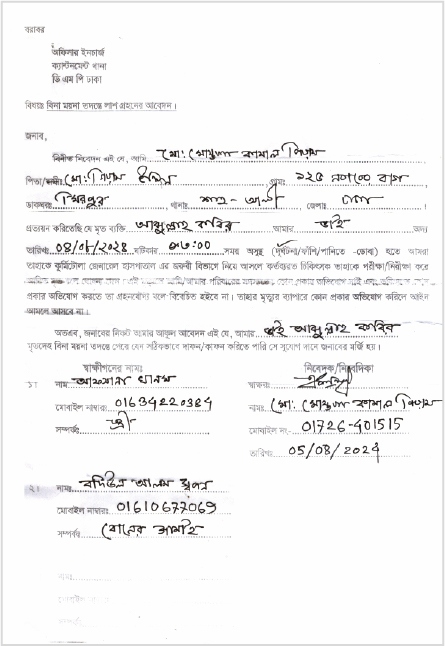 বরাবর
অফিসার ইনচার্জ
ক্যান্টনমেন্ট থানা
ডি এম পি ঢাকা
বিষয়ঃ বিনা ময়না তদন্তে লাশ গ্রহনের আবেদন।
জনাব,
বিনীত নিবেদন এই যে, আমি মো: মোস্তফা কামাল
পিতা/স্বামী মো: উদ্দিন গ্রাম: ১২৫
ডাকঘর মিরপুর থানাঃ শাহ-আলী জেলাঃ ঢাকা
প্রত্যয়ন করিতেছি যে মৃত ব্যক্তি আব্দুল্লাহ কবির আমার ভাই অদ্য
তারিখঃ ঘটিকার সময় অসুস্থ (দূর্ঘটনা/ফাঁসি/পানিতে -ডোবা) হতে আমরা
তাহাকে কুর্মিটোলা জেনারেল হাসপাতাল এর জরুরী বিভাগে নিয়ে আসলে কর্তব্যরত চিকিৎসক তাহাকে পরীক্ষা/নিরীক্ষা করে
প্রকার অভিযোগ করতে তা গ্রহনযোগ্য বলে বিবেচিত হইবে না। তাহার মৃত্যুর ব্যাপারে কোন প্রকার অভিযোগ করিলে আইনে
আমলে আসবে না।
অতএব, জনাবের নিকট আমার আকুল আবেদন এই যে, আমার ভাই আব্দুল্লাহ কবির
মৃতদেহ বিনা ময়না তদন্তে পেরে যেন সঠিকভাবে দাফন/কাফন করিতে পারি সে সুযোগ দানে জনাবের মর্জি হয়।
স্বাক্ষীগনের নামঃ
নিবেদক/নিবেদিকা
১। নাম আফসানা খানম
স্বাক্ষরঃ
মোবাইল নাম্বারঃ 01634220384
নামঃ মো: মোস্তফা কামাল
সম্পর্কঃ স্ত্রী
মোবাইল নং- 01726-401515
তারিখঃ 05/08/2024
২। নামঃ বদিউল আলম
মোবাইল নাম্বারঃ 01610677069
সম্পর্কঃ বোনের জামাই
নামঃ
মোবাইল নাম্বারঃ
সম্পর্কঃ